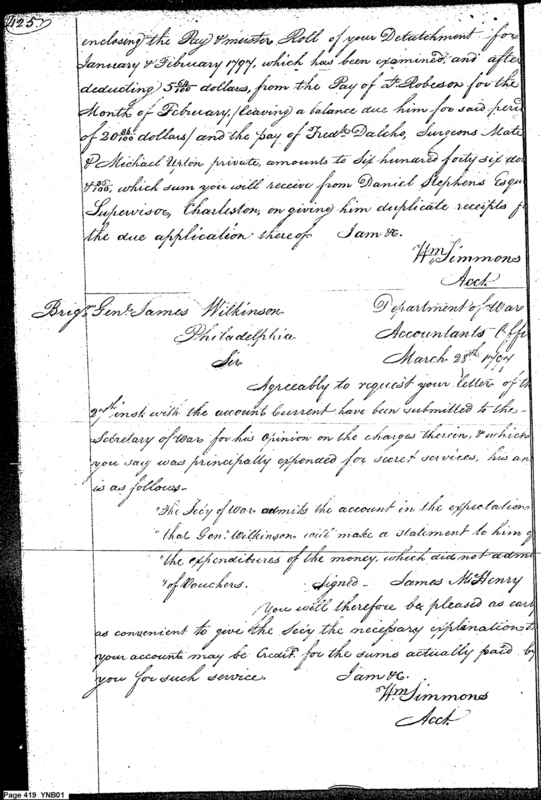 425
enclosing the Pay & muster Roll of your Detatchment for
January & February 1797, which has been examined, and after
deducting 5 dollars, from the Pay of F. Robeson for the
Month of February, (leaving a balance due him for said peri
of 20 dollars) and the pay of Fredk. Dalcho, Surgeons Mate
& Michael Urton private, amounts to Six hundred forty six do
& /100, which sum you will receive from Daniel Stephens Esqu
Supervisor, Charleston, on giving him duplicate receipts f
the due application thereof. I am &c.
Wm Simmons
Acct.
Brigr. Genl. James Wilkinson Department of War
Philadelphia Accountants Offi
Sir March 28th 1797
Agreeably to request your letter of th
27th inst. with the account Current have been submitted to the
Secretary of War for his opinion on the charges therein, & which
you say was principally expended for secret services, his an
is as follows.
"The Secy of War admits the account in the expectation
"that Genl. Wilkinson will make a statement to him o
"the expenditures of the money, which did not adm
"of Vouchers. Signed - James McHenry
You will therefore be pleased as earl
as convenient to give the Secy the necessary explanations t
your account may be Credit. for the sums actually paid by
you for such service. I am &c.
Wm Simmons
Acct.
Page 419 YNB01